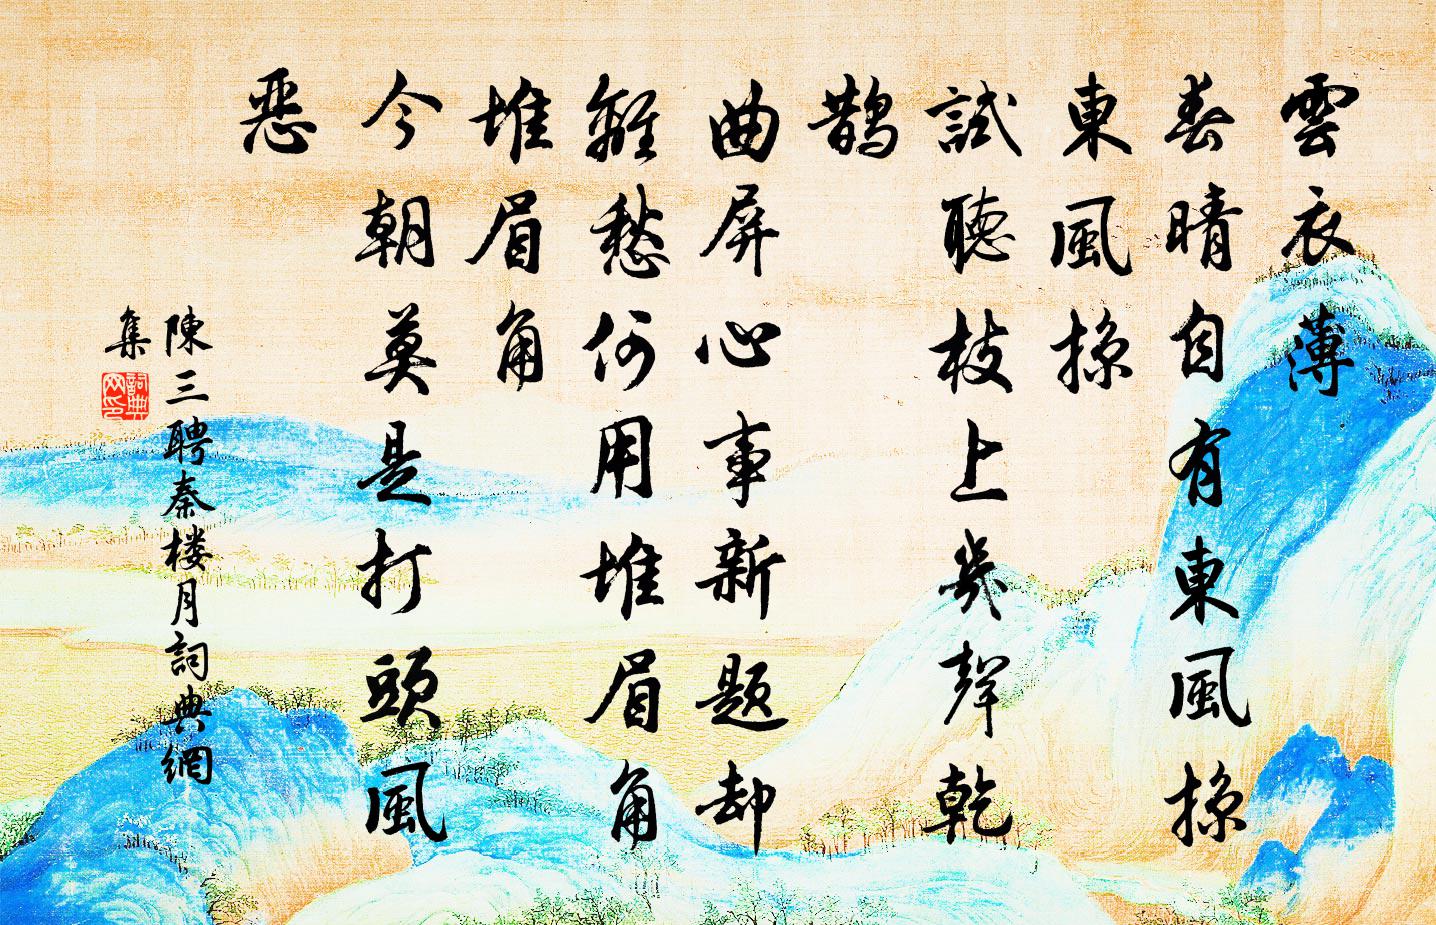 雲衣薄
春晴自有東風掠
東風掠
試聽枝上幾聲乾
鵲
曲屏心事新題却
離愁何用堆眉角
堆眉角
今朝莫是打頭風
惡
陳三聘秦楼月詞典網
集
詞典
网印